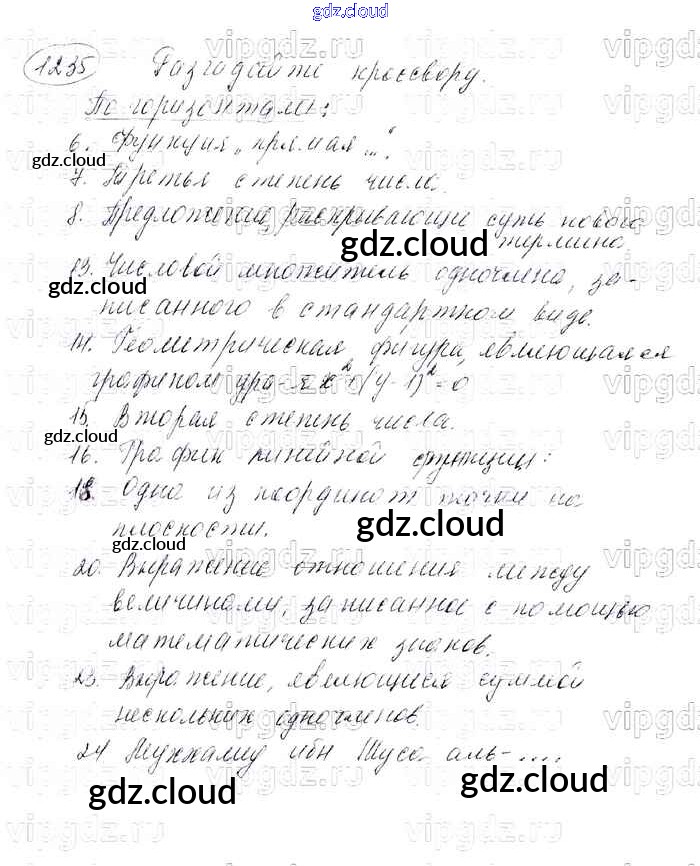 gdz.cloud
1235 Разгадайте кроссворд.
По горизонтали:
6. Функция „прямая ...“.
gdz.cloud
7. Третья степень числа.
8. Предложение, раскрывающие суть нового
gdz.cloud термина.
13. Числовой множитель одночлена, за-
gdz.cloud
писанного в стандартном виде.
14. Геометрическая фигура, являющаяся
графиком ура-я x²+(y-1)²=0
15. Вторая степень числа.
gdz.cloud
16. График линейной функции:
18. Одна из координат точки на
плоскости. gdz.cloud
gdz.cloud
20. Выражение отношения между
величинами, записанное с помощью
математических знаков.
23. Выражение, являющиеся суммой
нескольких одночленов.
24 Мухаммид ибн Муса аль-....
gdz.cloud gdz.cloud